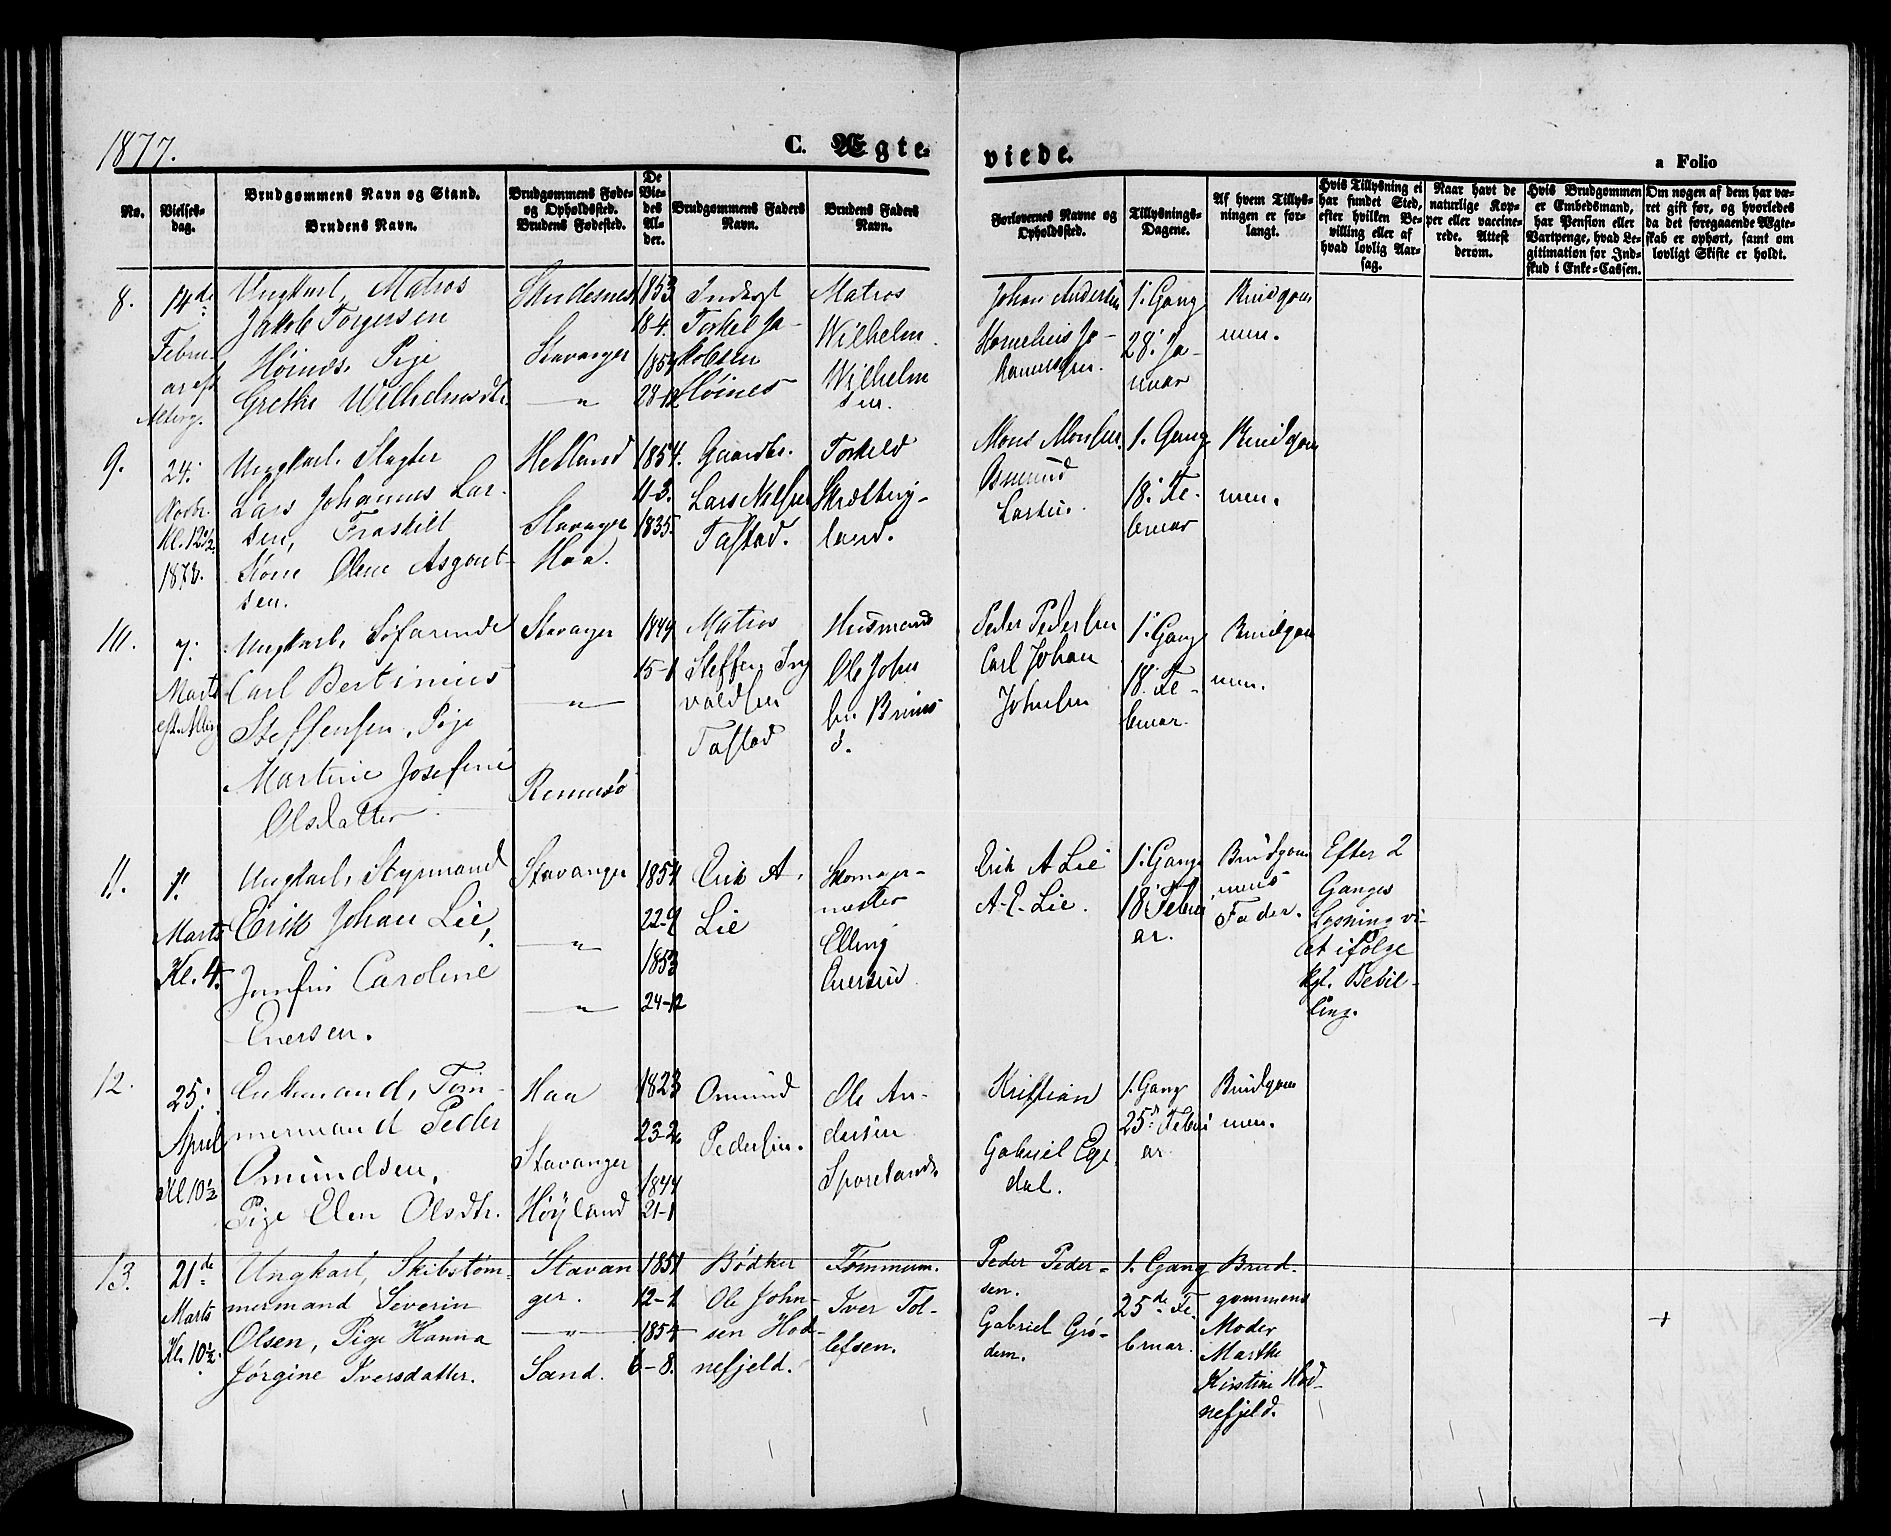 1877.
C. Ægte-
viede.
a Folio
No.
Vielses-
dag.
Brudgommens Navn og Stand.
Brudens Navn.
Brudgommens Føde-
og Opholdssted.
Brudens Fødested.
De
Vie-
des
Al-
der.
Brudgommens Faders
Navn.
Brudens Faders
Navn.
Forlovernes Navne og
Opholdssted.
Tillysnings-
Dagene.
Af hvem Tillys-
ningen er for-
langt.
Hvis Tillysning ei
har fundet Sted,
efter hvilken Be-
villing eller af
hvad lovlig Aar-
sag.
Naar havt de
naturlige Kop-
per eller vaccine-
rede. Attest
derom.
Hvis Brudgommen
er Embedsmand,
har Pension eller
Vartpenge, hvad Le-
gitimation for Ind-
skud i Enke-Cassen.
Om nogen af dem har væ-
ret gift før, og hvorledes
da det foregaaende Ægte-
skab er ophørt, samt om
lovligt Skifte er holdt.
8.
14de
Febru-
ar eft
Ungkarl, Matros
Jakob Torgersen
Høines. Pige
Grethe Wilhelmsdtr.
Skudesnes
Stavanger
— " —
1853
18-4.
1854
28-12
Torkel Ja-
kobsen
Høines
Matros
Wilhelm
Wilhelm
sen.
Johan Andersen
Kornelius Jo-
hannessen.
1. Gang
28. Ja-
nuar
Brudgom
men.
9.
24.
Novbr.
Kl. 12½
1878.
Ungkarl, Slagter
Lars Johannes Lar-
sen, Fraskilt
Kone Olene Asgaut-
sen.
Hetland
Stavanger
Haa.
1854.
11-3.
1835.
Gaardbr.
Lars Nilsen
Tastad.
Torkeld
Skretting-
land.
Mons Monsen.
Osmund
Larsen.
1. Gang
18. Fe-
bruar
Brudgom
men.
10.
7.
Marts
Ungkarl, Søfarende
Carl Bertinius
Steffensen, Pige
Martine Josefine
Olsdatter.
Stavanger
— " —
Rennesø
1849
15-1
Matros
Steffen Ing
valdsen
Tastad
Husmand
Ole John
sen Brimse
Peder Pedersen
Carl Johan
Johnsen
1. Gang
18. Fe-
bruar.
Brudgom
men.
11.
1.
Marts
Kl. 4.
Ungkarl, Styrmand
Erik Johan Lie,
Jomfru Caroline
Enersen.
Stavanger
— " —
— " —
1854
22-9
1853
24-12
Erik A.
Lie
Skomager-
mester
Elling
Enersen
Erik A Lie
A. E. Lie.
1. Gang
18 Febru
ar.
Brudgom
mens
Fader.
Efter 2
Ganges
Lysning vi-
et ifølge
kgl. Bevil-
ling.
12.
25.
April
Kl 10½
Enkemand, Tøm-
mermand Peder
Omundsen,
Pige Elen Olsdtr.
Haa
Stavanger
Høyland
1823
23-2.
1844
21-1
Omund
Pedersen.
Ole An-
dersen
Sporeland.
Kristian
Gabriel Ege
dal.
1. Gang
25de Febru
ar.
Brudgom
men.
13.
21de
Marts
Kl. 10½.
Ungkarl, Skibstøm-
mermand Severin
Olsen, Pige Hanna
Jørgine Iversdatter.
Stavan
ger.
— " —
Sand.
1851
12-1
1854
6-8.
Bødker
Ole John-
sen Hod-
nefjeld.
Tømmerm.
Iver Tol-
lefsen.
Peder Peder-
sen.
Gabriel Grø-
dem.
1. Gang
25de Fe-
bruar.
Brud-
gommens
Moder
Marthe
Kirstine Hod-
nefjeld.
+